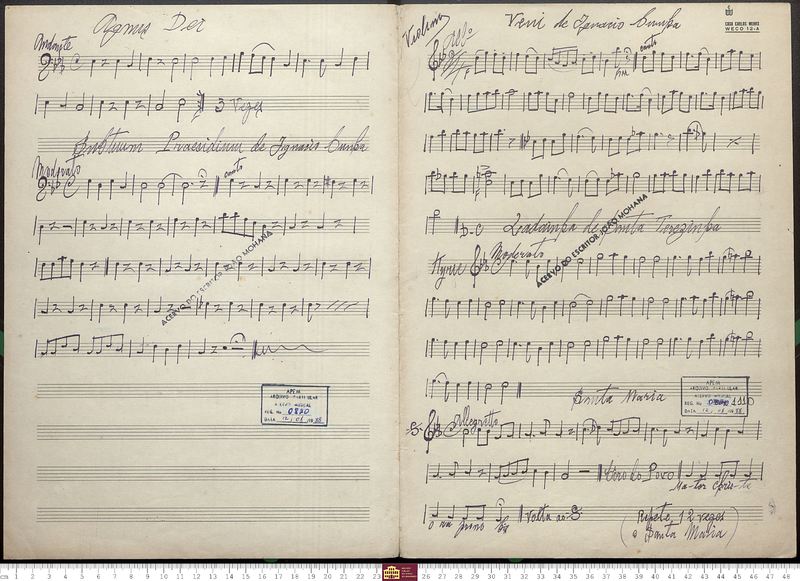 Agnus Dei
Andante
3 Vezes
Praesidium de Ignacio Cunha
Moderato
canto
ACERVO DO ESCRITOR JOÃO MOHANA
APEM
ACERVO MUSICAL
REG. No 0820
DATA 12, 01, 1988
Violino
Veni de Ignacio Cunha
CASA CARLOS WEHRS
WECO 12-A
canto
D-C
Ladainha de Santa Terezinha
ACERVO DO ESCRITOR JOÃO MOHANA
Kyrie
Moderato
Santa Maria
APEM
ACERVO MUSICAL
REG. No 1110
DATA 12, 01, 1988
Allegretto
Povo
Ma-ter Chris-te
Volta ao
Repete 12 vezes
o Santa Maria